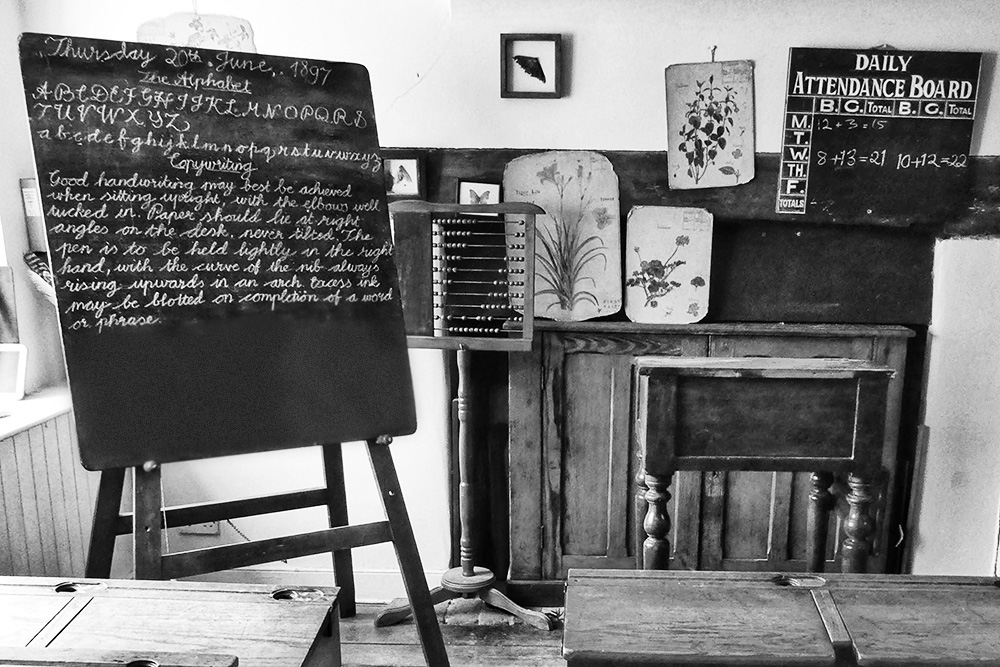 Thursday 20th. June, 1897
The Alphabet
A B C D E F G H I J K L M N O P Q R S
T U V W X Y Z
a b c d e f g h i j k l m n o p q r s t u v w x y z
Copywriting
Good handwriting may best be achieved
when sitting upright, with the elbows well
tucked in. Paper should lie at right
angles on the desk, never tilted. The
pen is to be held lightly in the right
hand, with the curve of the nib always
rising upwards in an arch. Excess ink
may be blotted on completion of a word
or phrase.
DAILY
ATTENDANCE BOARD
B. G. TOTAL B. G. TOTAL
M. 12 + 3 = 15
T.
W. 8 + 13 = 21 10 + 12 = 22
TH.
F.
TOTALS